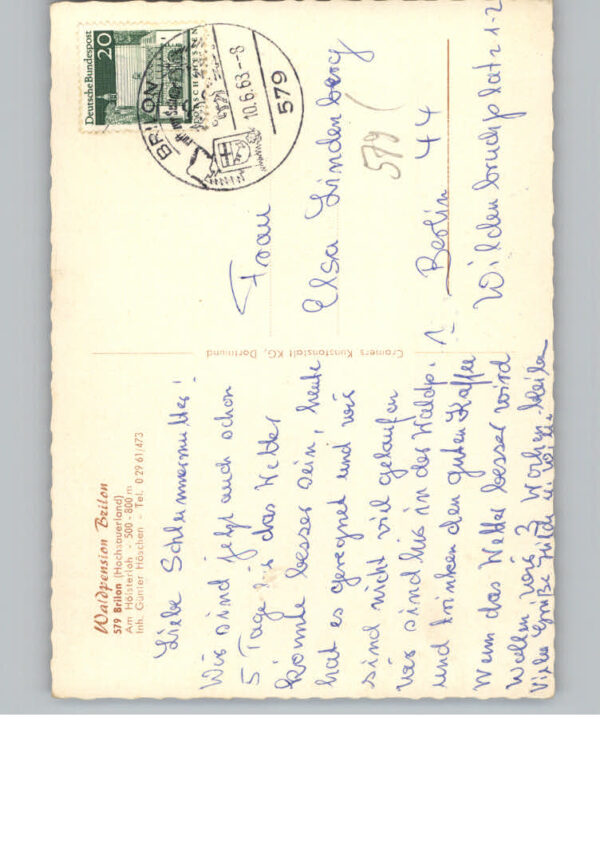 Waldpension Brilon
579 Brilon (Hochsauerland)
Am Hölsterloh - 500 - 800 m
Inh. Günter Höschen - Tel. 0 29 61/473
Liebe Schlummermutter!
Wir sind jetzt auch schon
5 Tage hir das Wetter
könnte besser sein, heute
hat es geregnet und wir
sind nicht viel gelaufen
wir sind hir in der Waldp.
und trinken den guten Kaffee
Wenn das Wetter besser wird
Wollen wir 3 Wochen bleiben
Viele Grüße
Cramers Kunstanstalt KG, Dortmund
Deutsche Bundespost
20
BRILON
10.6.68-8
579
579
Frau
Elsa Lindenberg
1 Berlin 44
Wildenbruchplatz 1-2